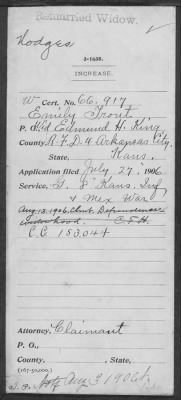 Remarried Widow.
Hodges
3-1638.
INCREASE.
W Cert. No. 66,917
Emily Trout
P. Hd Edmund H. King
County, R.F.D. 4 Arkansas City,
State, Kans.
Application filed July 27" 1906
Service, G. 8" Kans. Inf
& Mex War
Aug. 13. 1906. Clmt.
C.C. 153044
Attorney, Claimant
P. O.,
County, , State,
Aug 3 1906